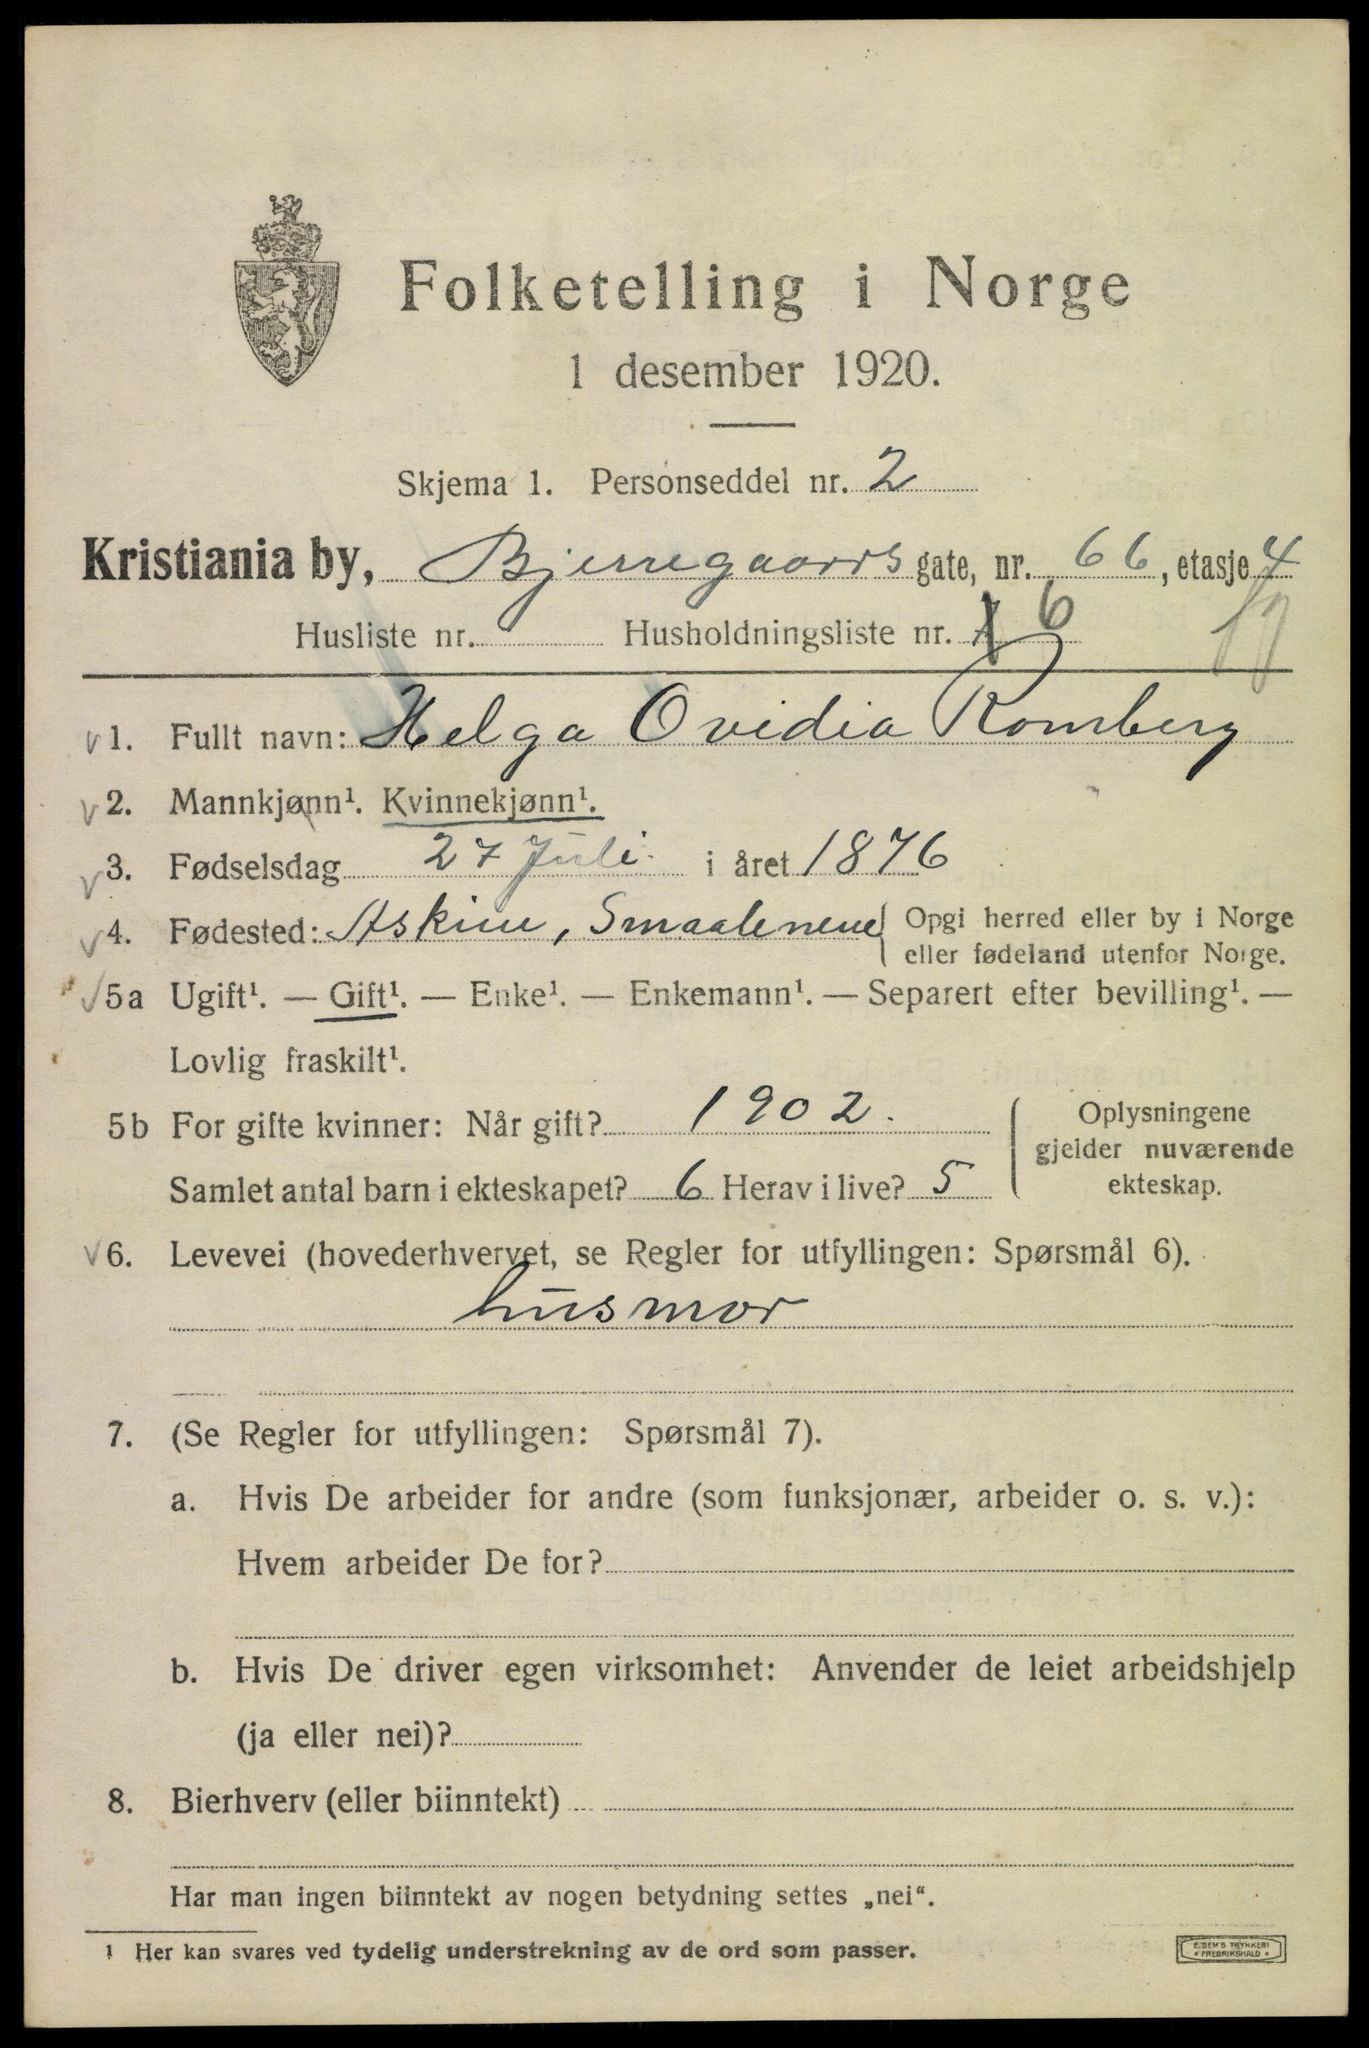 Folketelling i Norge
1 desember 1920.
Skjema 1. Personseddel nr. 2
Kristiania by, Bjerregaards gate, nr. 66, etasje 4
Husliste nr. Husholdningsliste nr. 6
v 1. Fullt navn: Helga Ovidia Romberg
v 2. Mannkjønn¹. Kvinnekjønn¹.
v 3. Fødselsdag 27 Juli i året 1876
v 4. Fødested: Askim, Smaalenene { Opgi herred eller by i Norge
eller fødeland utenfor Norge.
v 5a Ugift¹. — Gift¹. — Enke¹. — Enkemann¹. — Separert efter bevilling¹. —
Lovlig fraskilt¹.
5b For gifte kvinner: Når gift? 1902.
Samlet antal barn i ekteskapet? 6 Herav i live? 5
Oplysningene
gjelder nuværende
ekteskap.
v 6. Levevei (hovederhvervet, se Regler for utfyllingen: Spørsmål 6).
husmor
7. (Se Regler for utfyllingen: Spørsmål 7).
a. Hvis De arbeider for andre (som funksjonær, arbeider o. s. v.):
Hvem arbeider De for?
b. Hvis De driver egen virksomhet: Anvender de leiet arbeidshjelp
(ja eller nei)?
8. Bierhverv (eller biinntekt)
Har man ingen biinntekt av nogen betydning settes „nei“.
1 Her kan svares ved tydelig understrekning av de ord som passer.
E. SEM'S TRYKKERI
• FREDRIKSHALD •